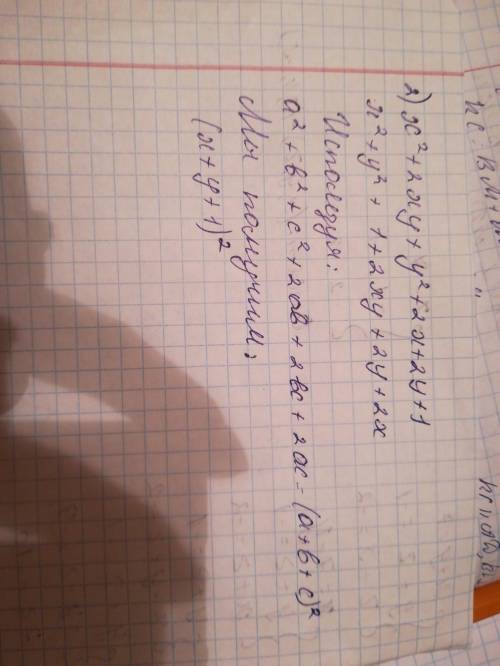 2) x² + 2xy + y² + 2x + 2y + 1
x² + y² + 1 + 2xy + 2y + 2x
Используя:
a² + b² + c² + 2ab + 2bc + 2ac = (a + b + c)²
Мы получим:
(x + y + 1)²